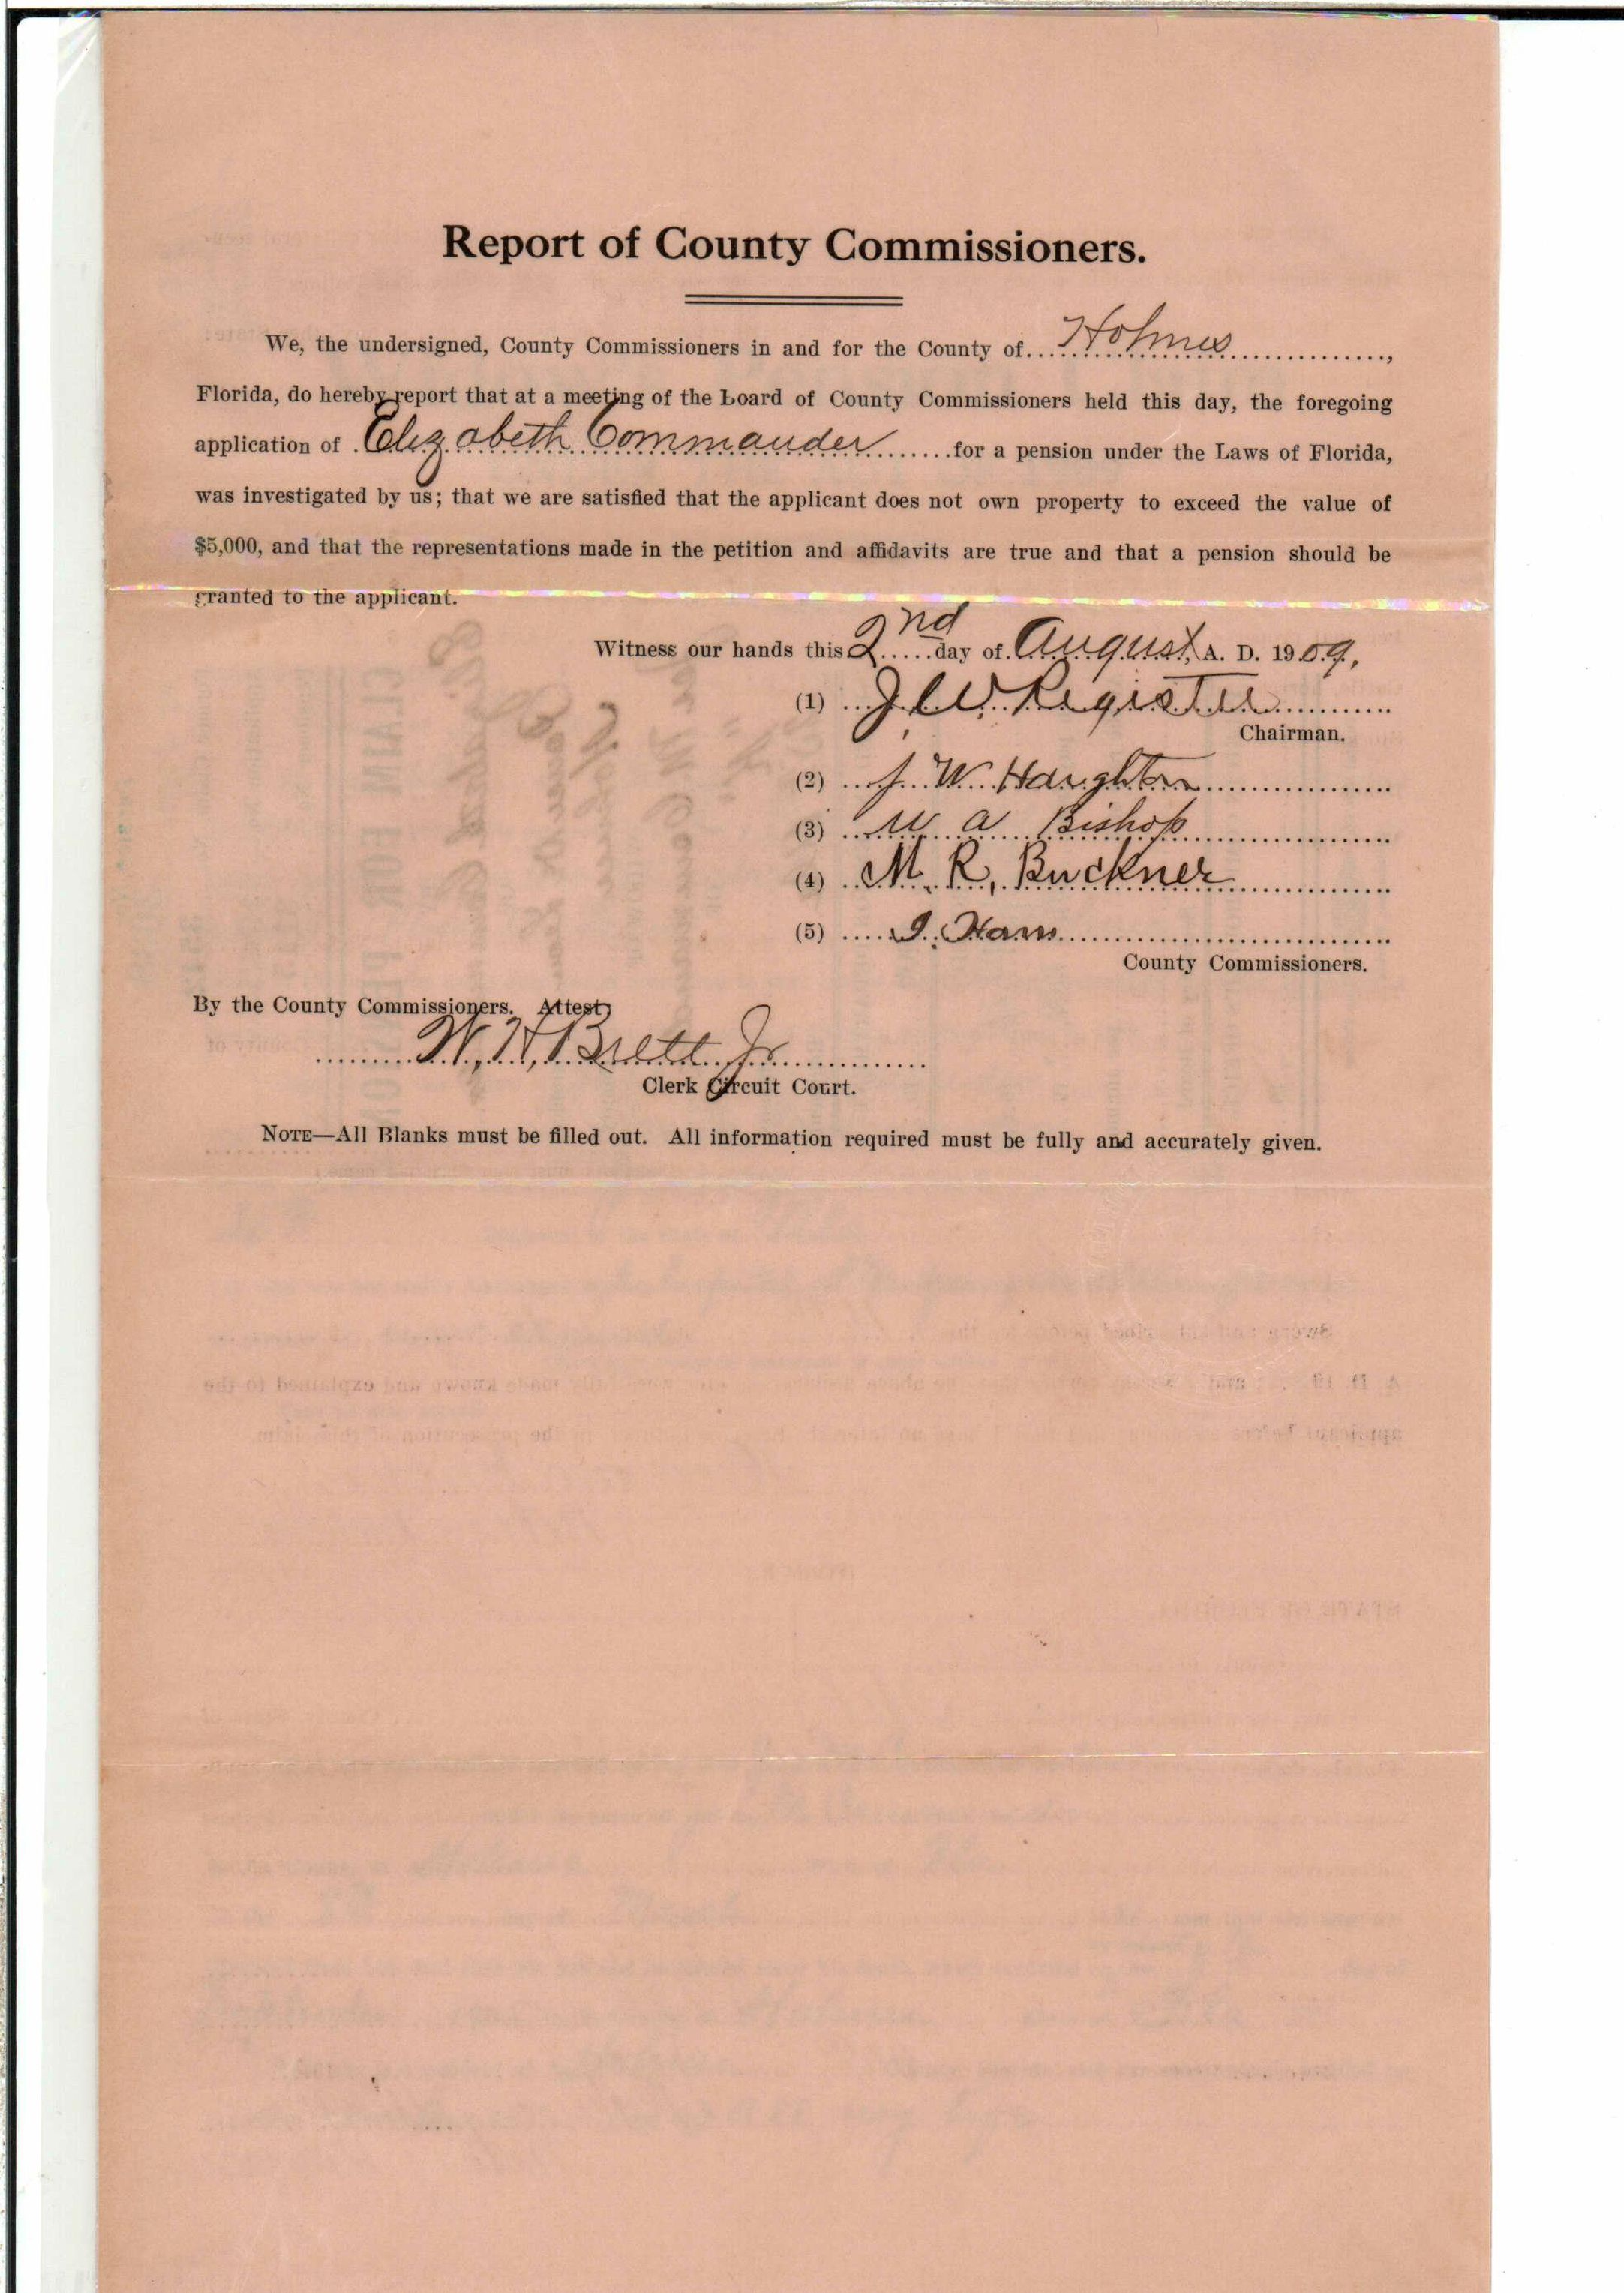 Report of County Commissioners.
We, the undersigned, County Commissioners in and for the County of Holmes,
Florida, do hereby report that at a meeting of the Board of County Commissioners held this day, the foregoing
application of Elizabeth Commander for a pension under the Laws of Florida,
was investigated by us; that we are satisfied that the applicant does not own property to exceed the value of
$5,000, and that the representations made in the petition and affidavits are true and that a pension should be
granted to the applicant.
Witness our hands this 2nd day of August, A. D. 1909.
(1) J. W. Register
Chairman.
(2) J. W. Haughton
(3) W A Bishop
(4) M. R, Buckner
(5) I. Ham
County Commissioners.
By the County Commissioners. Attest,
W, H, Brett Jr
Clerk Circuit Court.
NOTE—All Blanks must be filled out. All information required must be fully and accurately given.